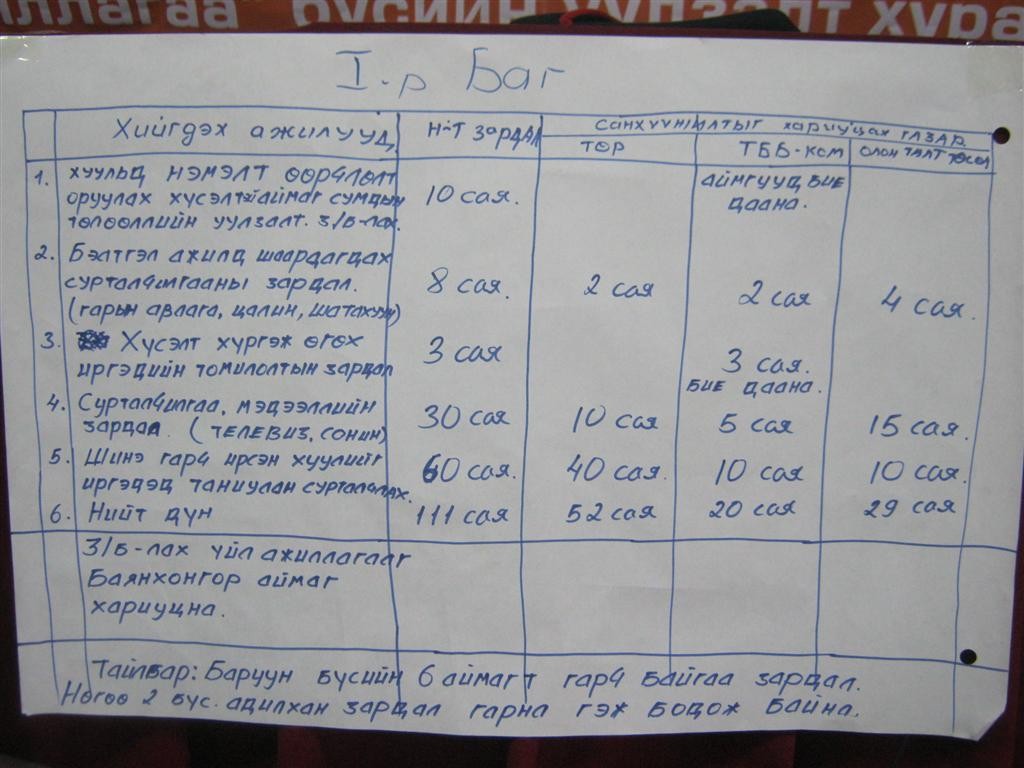 ллагаа" бүсийн уулзалт хура
I-р Баг
Хийгдэх ажилууд, Н-Т зардал Санхүүжилтыг хариуцах газар
ТӨР ТББ-ком олон талт төсөл
1. хуульд нэмэлт өөрчлөлт
оруулах хүсэлтэй аймаг сумдын 10 сая. Аймгууд бие
төлөөллийн уулзалт. З/Б-лах. даана.
2. Бэлтгэл ажилд шаардагдах
сурталчилгааны зардал. 8 сая. 2 сая 2 сая 4 сая.
(гарын авлага, цалин, шатахуун)
3. Хүсэлт хүргэж өгөх 3 сая 3 сая.
иргэдийн томилолтын зардал бие даана.
4. Сурталчилгаа, мэдээллийн 30 сая 10 сая 5 сая 15 сая.
зардал. (ТЕЛЕВИЗ, СОНИН)
5. Шинэ гарч ирсэн хуулийг 60 сая. 40 сая. 10 сая 10 сая
иргэдэд таниулан сурталчлах.
6. Нийт дүн 111 сая 52 сая 20 сая 29 сая
З/Б-лах үйл ажиллагааг
Баянхонгор аймаг
хариуцна.
Тайлбар: Баруун бүсийн 6 аймагт гарч байгаа зардал.
Нөгөө 2 бүс. адилхан зардал гарна гэж бодож байна.